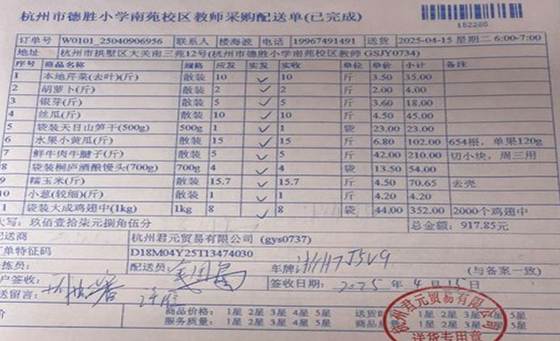 杭州市德胜小学南苑校区教师采购配送单(已完成)
182286
订单号 W0101_25040906956 联系人 楼海波 电话 19967491491 送货 2025-04-15 星期二 6:00-7:00
地址 杭州市拱墅区大关南三苑12号(杭州市德胜小学南苑校区教师 GSJY0734)
序号 商品名称 规格 应发 实发 实收 单位 单价 小计 备注
1 本地芹菜(去叶)(斤) 散装 10 ✓ 10 斤 3.50 35.00
2 胡萝卜(斤) 散装 2 ✓ 2 斤 2.00 4.00
3 银芽(斤) 散装 5 ✓ 5 斤 3.60 18.00
4 丝瓜(斤) 散装 10 ✓ 10 斤 4.50 45.00
5 袋装天目山笋干(500g) 500g 1 ✓ 1 袋 23.00 23.00
6 水果小黄瓜(斤) 散装 15 ✓ 15 斤 6.80 102.00 654根,单果120g
7 鲜牛肉牛腱子(斤) 散装 5 ✓ 5 斤 42.00 210.00 切小块,周三用
8 袋装桐庐酒酿馒头(700g) 700g 4 ✓ 4 袋 13.50 54.00
9 糯玉米(斤) 散装 15.7 ✓ 15.7 斤 4.50 70.65 去壳
10 小葱(较细)(斤) 散装 1 ✓ 1 斤 4.20 4.20
1 袋装大成鸡翅中(1kg) 1kg 8 ✓ 8 袋 44.00 352.00 2000个鸡翅中
大写:玖佰壹拾柒元捌角伍分 总金额: 917.85元
配送商 杭州君元贸易有限公司 (gys0737)
订单特征码 D18M04Y25T13474030
拣员: 配送员: 车牌: (与备案一致)
客户签收: 签收日期: 2025年4月15日
送留言: 商品价格: 1星 2星 3星 4星 5星 商品质量: 1星 2星 3星 4星 5星
服务质量: 1星 2星 3星 4星 5星
杭州君元贸易有限公司
送货专用章